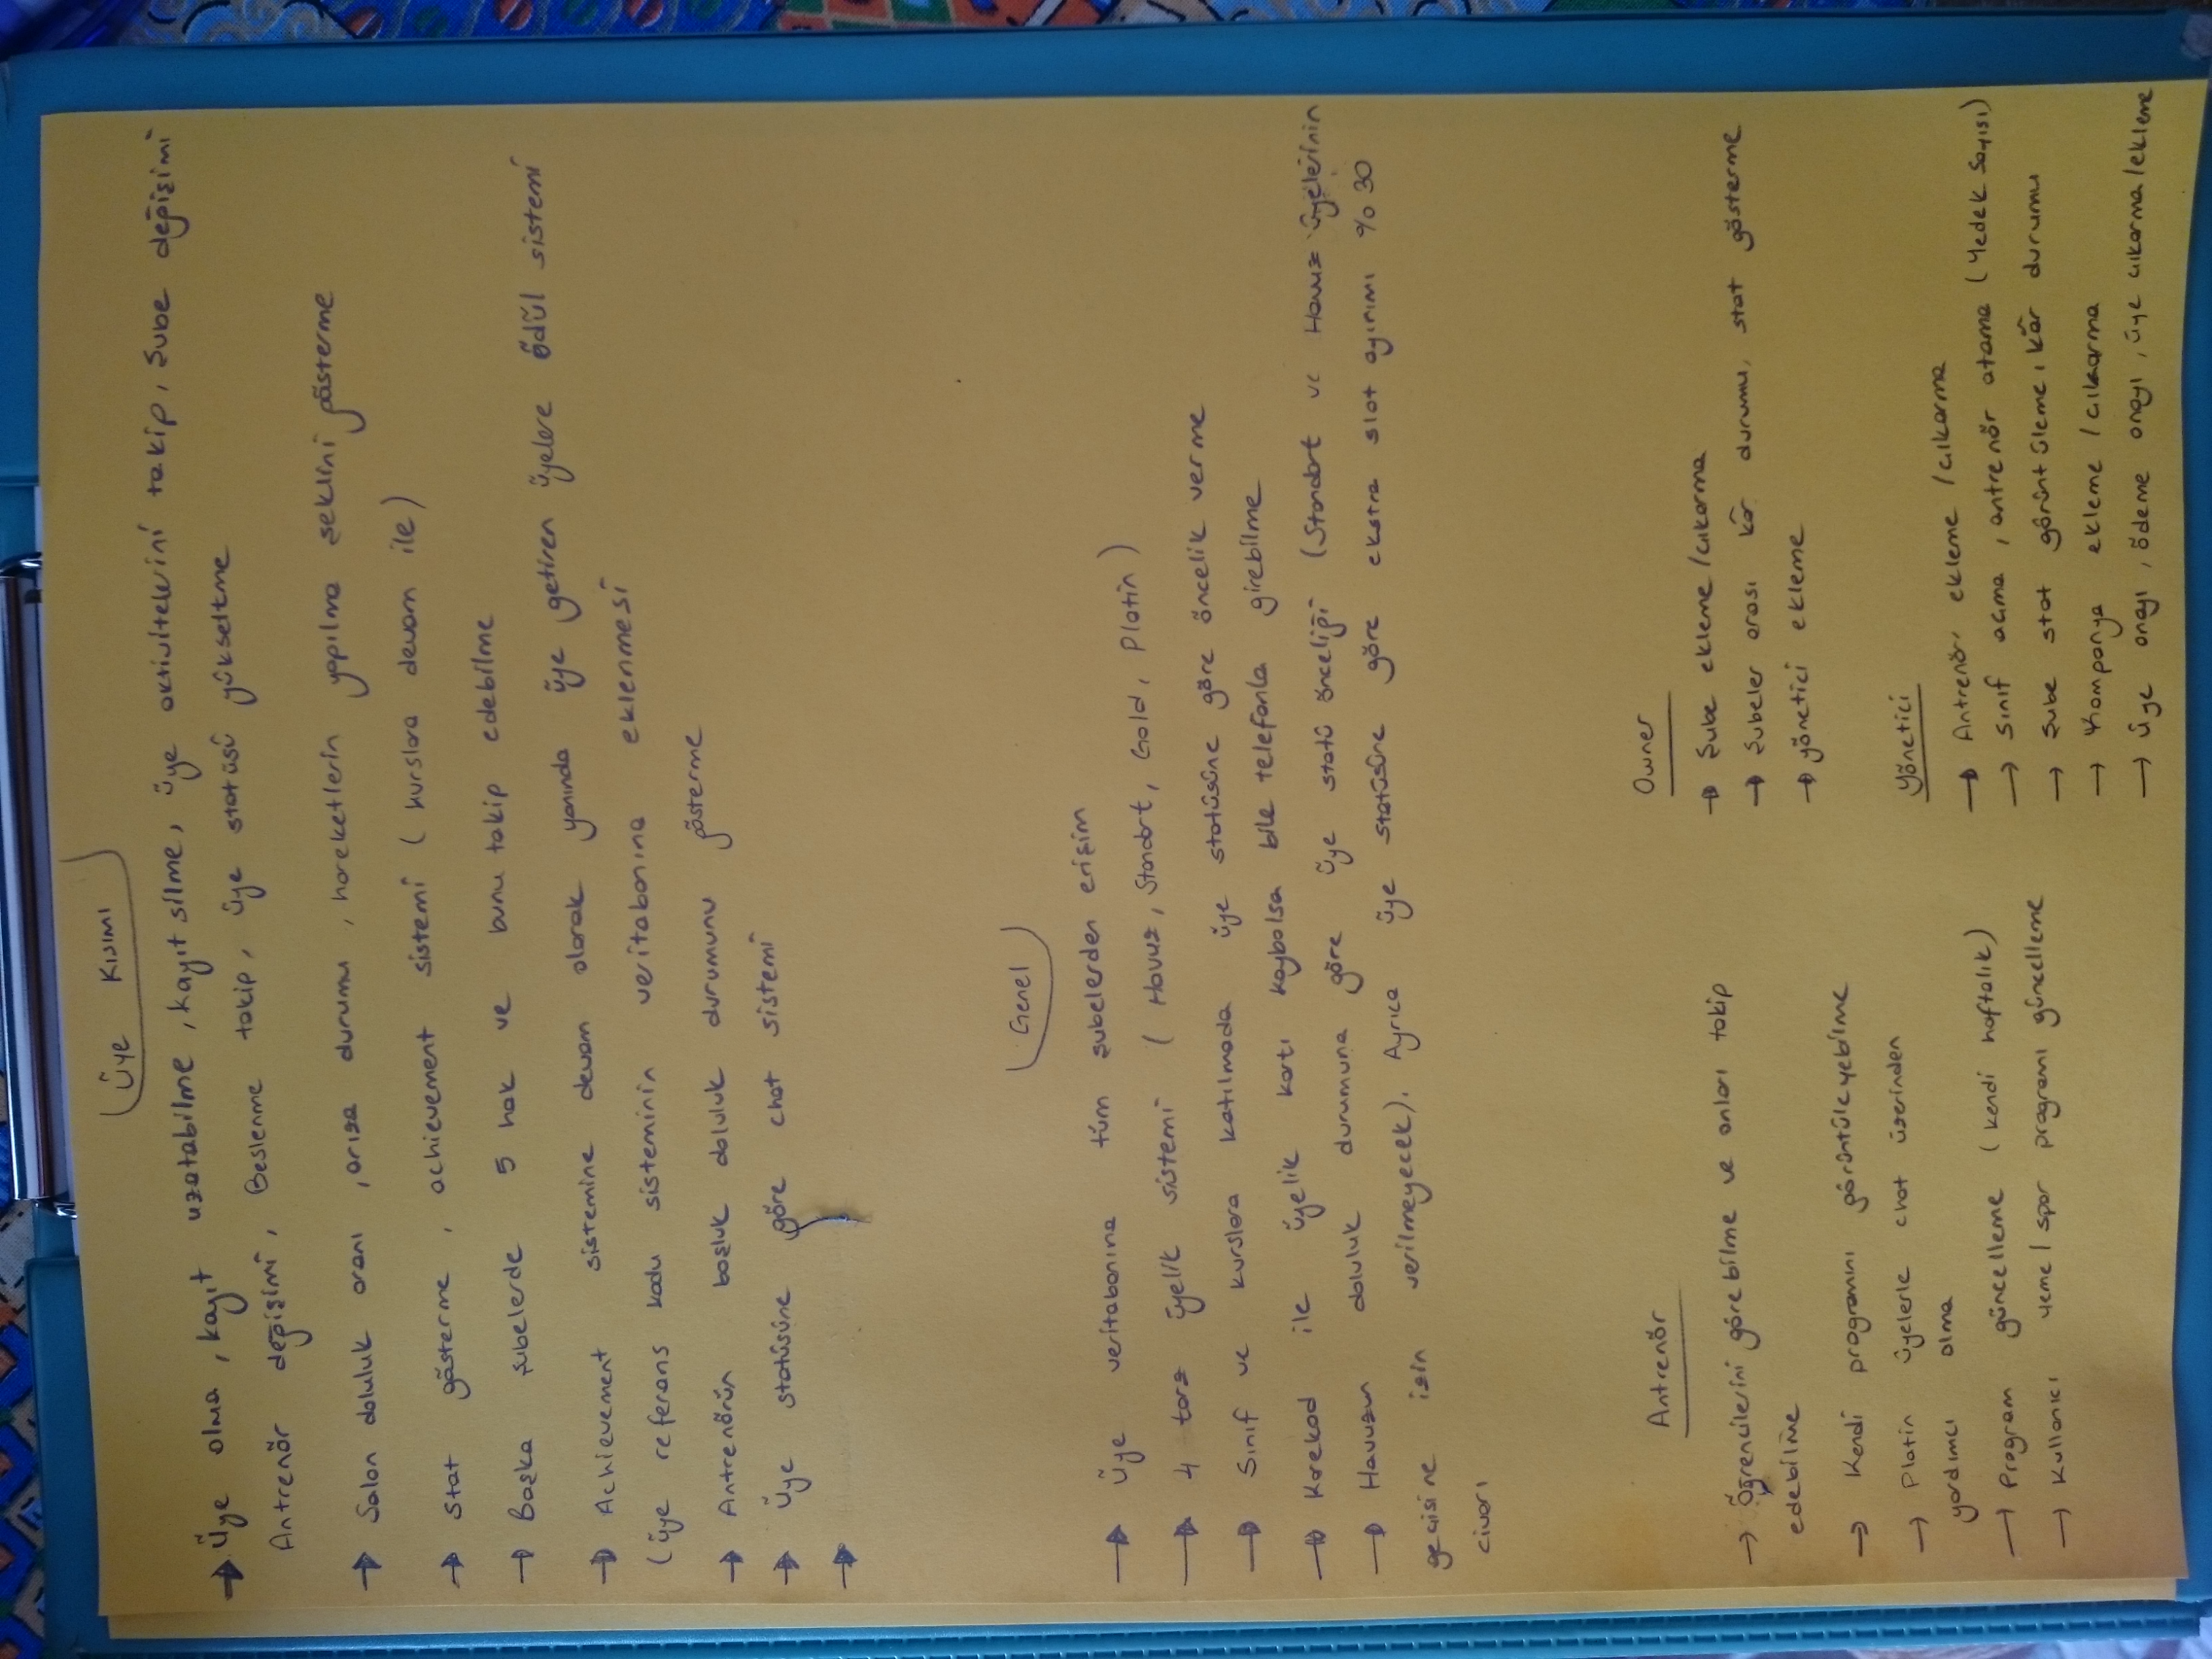 Üye Kısmı
→ Üye olma, kayıt uzatabilme, kayıt silme, üye aktivitelerini takip, Şube değişimi
Antrenör değişimi, Beslenme takip, üye statüsü yükseltme
→ Salon doluluk oranı, arıza durumu, hareketlerin yapılma şeklini gösterme
→ Stat gösterme, achievement sistemi (kurslara devam ile)
→ Başka şubelerde 5 hak ve bunu takip edebilme
→ Achievement sistemine devam olarak yanında üye getiren üyelere ödül sistemi
(üye referans kodu sisteminin veritabanına eklenmesi
→ Antrenörün boşluk doluluk durumunu gösterme
→ Üye statüsüne göre chat sistemi
→
Genel
→ Üye veritabanına tüm şubelerden erişim
→ 4 tarz üyelik sistemi (Havuz, Standart, Gold, Platin)
→ Sınıf ve kurslara katılmada üye statüsüne göre öncelik verme
→ Karekod ile üyelik kartı kaybolsa bile telefonla girebilme
→ Havuzun doluluk durumuna göre üye statü önceliği (Standart ve Havuz üyelerinin
geçişine izin verilmeyecek). Ayrıca üye statüsüne göre ekstra slot ayrımı %30
civarı
Antrenör
→ Öğrencilerini görebilme ve onları takip
edebilme
→ Kendi programını görüntüleyebilme
→ Platin üyelerle chat üzerinden
yardımcı olma
→ Program güncelleme (kendi haftalık)
→ Kullanıcı yeme / spor programı güncelleme
Owner
→ Şube ekleme/çıkarma
→ Şubeler arası kâr durumu, stat gösterme
→ yönetici ekleme
Yönetici
→ Antrenör ekleme / çıkarma
→ Sınıf açma, antrenör atama (Yedek sayısı)
→ Şube stat görüntüleme, kâr durumu
→ Kampanya ekleme / çıkarma
→ Üye onayı, ödeme onayı, üye çıkarma/ekleme